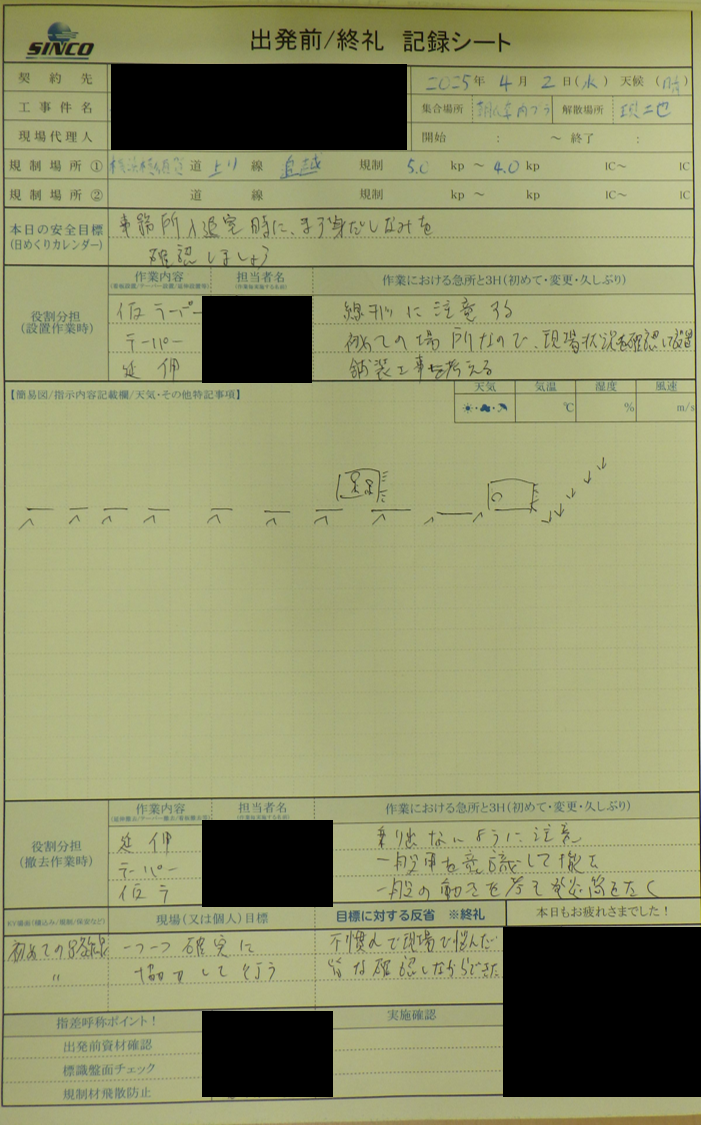 SINCO
出発前/終礼 記録シート
契約先
2025年 4月 2日(水) 天候 (晴)
工事件名
集合場所 解散場所
現場代理人
開始 : ～ 終了 :
規制場所① 道 上り 線 追越 規制 5.0 kp ～ 4.0 kp IC～ IC
規制場所② 道 線 規制 kp ～ kp IC～ IC
本日の安全目標
(日めくりカレンダー)
事務所入退室時に、まず身だしなみを
確認しましょう
役割分担
(設置作業時)
作業内容 担当者名 作業における急所と3H(初めて・変更・久しぶり)
仮テーパー 線形に注意する
テーパー 初めての場所なので、現場状況を確認して設置
延伸 舗装工事を考える
【簡易図/指示内容記載欄/天気・その他特記事項】
天気 気温 湿度 風速
℃ % m/s
役割分担
(撤去作業時)
作業内容 担当者名 作業における急所と3H(初めて・変更・久しぶり)
延伸 乗り出ないように注意
テーパー 一般車を意識して撤去
仮テ 一般の動きを考え
現場(又は個人)目標 目標に対する反省 ※終礼 本日もお疲れさまでした!
初めての路線 一つ一つ確実に 不慣れで現場で悩んだ
〃 協力して行う 確認しながらできた
指差呼称ポイント! 実施確認
出発前資材確認
標識盤面チェック
規制材飛散防止